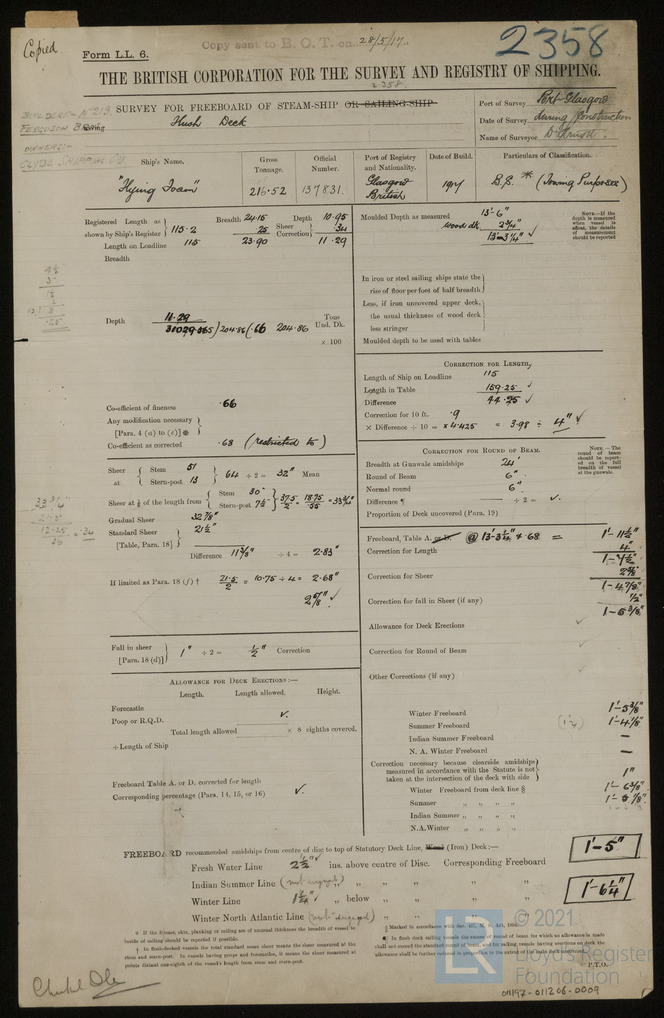 Copied
Form L.L. 6.
Copy sent to B.O.T. on 28/5/17
2358
THE BRITISH CORPORATION FOR THE SURVEY AND REGISTRY OF SHIPPING.
2358
SURVEY FOR FREEBOARD OF STEAM-SHIP OR SAILING-SHIP
Flush Deck
BUILDERS No 213
FERGUSON BROS
OWNERS:-
CLYDE SHIPPING CO
Port of Survey Port-Glasgow
Date of Survey during Construction
Name of Surveyor
Ship's Name. Gross Tonnage. Official Number. Port of Registry and Nationality. Date of Build. Particulars of Classification.
"Flying Foam" 216.52 137831. Glasgow British 1917 B.S. * (Towing Purposes)
Registered Length as shown by Ship's Register } 115.2 Breadth 24.15 Depth 10.95
.25 Sheer Correction } .34
Length on Loadline 115 23.90 11.29
Breadth
Depth 11.29
204.86 (.66 204.86 Tons Und. Dk. × 100
Co-efficient of fineness .66
Any modification necessary }
[Para. 4 (a) to (e)]
Co-efficient as corrected .68 (restricted to)
Sheer at { Stem 51
Stern-post 13 } 64 ÷ 2 = 32" Mean
Sheer at ⅛ of the length from { Stem 30"
Stern-post 7½ } 37.5/2 = 18.75/.55 = 33¾"
Gradual Sheer 32⅞"
Standard Sheer 21½"
[Table, Para. 18]
Difference 11⅜" ÷ 4 = 2.83"
If limited as Para. 18 (f) † 21.5/2 = 10.75 ÷ 4 = 2.68"
2⅝" ✓
Fall in sheer } 1" ÷ 2 = ½" Correction
[Para. 18 (d)]
ALLOWANCE FOR DECK ERECTIONS:—
Length. Length allowed. Height.
Forecastle
Poop or R.Q.D. ✓.
Total length allowed × 8 eighths covered.
÷ Length of Ship
Freeboard Table A. or D. corrected for length
Corresponding percentage (Para. 14, 15, or 16) ✓.
Moulded Depth as measured 13'-6"
Wood dk. 2¾"
13'-3¼" ✓
NOTE.—If the depth is measured when vessel is afloat, the details of measurement should be reported
In iron or steel sailing ships state the rise of floor per foot of half breadth
Less, if iron uncovered upper deck, the usual thickness of wood deck less stringer
Moulded depth to be used with tables
CORRECTION FOR LENGTH,
Length of Ship on Loadline 115
Length in Table 159.25 ✓
Difference 44.25 ✓
Correction for 10 ft. .9
× Difference ÷ 10 = × 4.425 = 3.98 ÷ 4" ✓
CORRECTION FOR ROUND OF BEAM.
NOTE.—The round of beam should be reported on the full breadth of vessel at the gunwale.
Breadth at Gunwale amidships 24'
Round of Beam 6"
Normal round 6"
Difference ¶ ÷ 2 = ✓.
Proportion of Deck uncovered (Para. 19)
Freeboard, Table A. or D. @ 13'-3¼" & 68 = 1'-11½"
Correction for Length 4"
1'-7½"
Correction for Sheer 2⅝"
1'-4⅞"
Correction for fall in Sheer (if any) ½"
1'-5⅜"
Allowance for Deck Erections
Correction for Round of Beam
Other Corrections (if any)
Winter Freeboard 1'-5⅜"
Summer Freeboard (1¼) 1'-4⅛"
Indian Summer Freeboard —
N. A. Winter Freeboard —
Correction necessary because clearside amidships measured in accordance with the Statute is not taken at the intersection of the deck with side } 1"
Winter Freeboard from deck line § 1'-6⅜"
Summer „ „ „ „ 1'-5⅛"
Indian Summer „ „ „ „
N.A. Winter „ „ „ „
FREEBOARD recommended amidships from centre of disc to top of Statutory Deck Line, Wood (Iron) Deck:— 1'-5"
Fresh Water Line 2½" ✓ ins. above centre of Disc. Corresponding Freeboard
Indian Summer Line (not engaged) „ „ „ „ „
Winter Line 1¼" ✓ „ below „ „ „ 1'-6¼"
Winter North Atlantic Line (not engaged) „ „ „ „
P.T.O.
© 2021
LR Lloyd's Register Foundation
01197-011206-0009